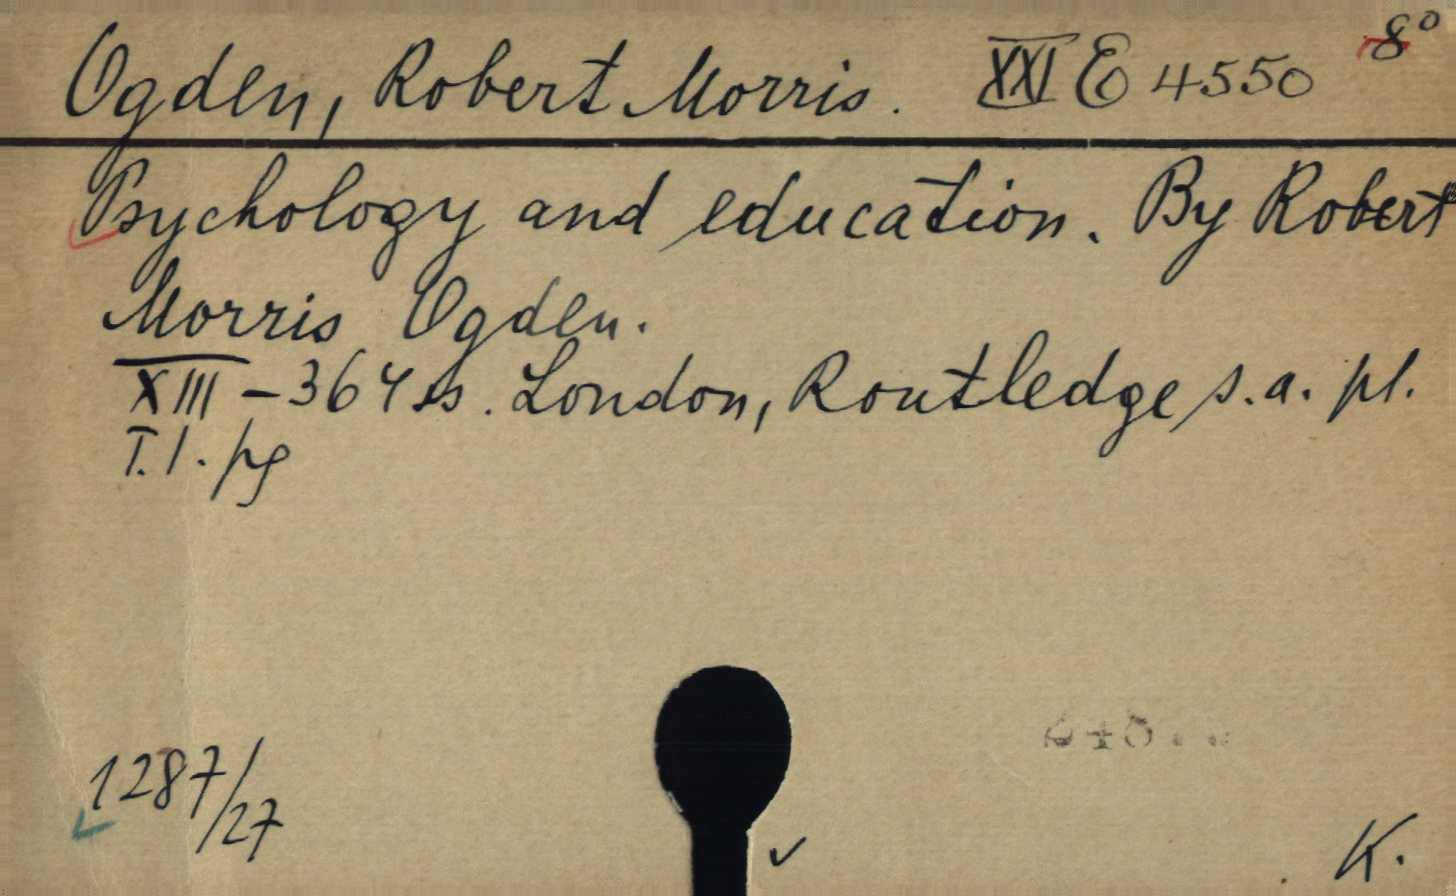 Ogden, Robert Morris. XXI E 4550 8°
Psychology and education. By Robert
Morris Ogden.
XIII – 364 s. London, Routledge s.a. pl.
T.l. pg
1287/27
K.